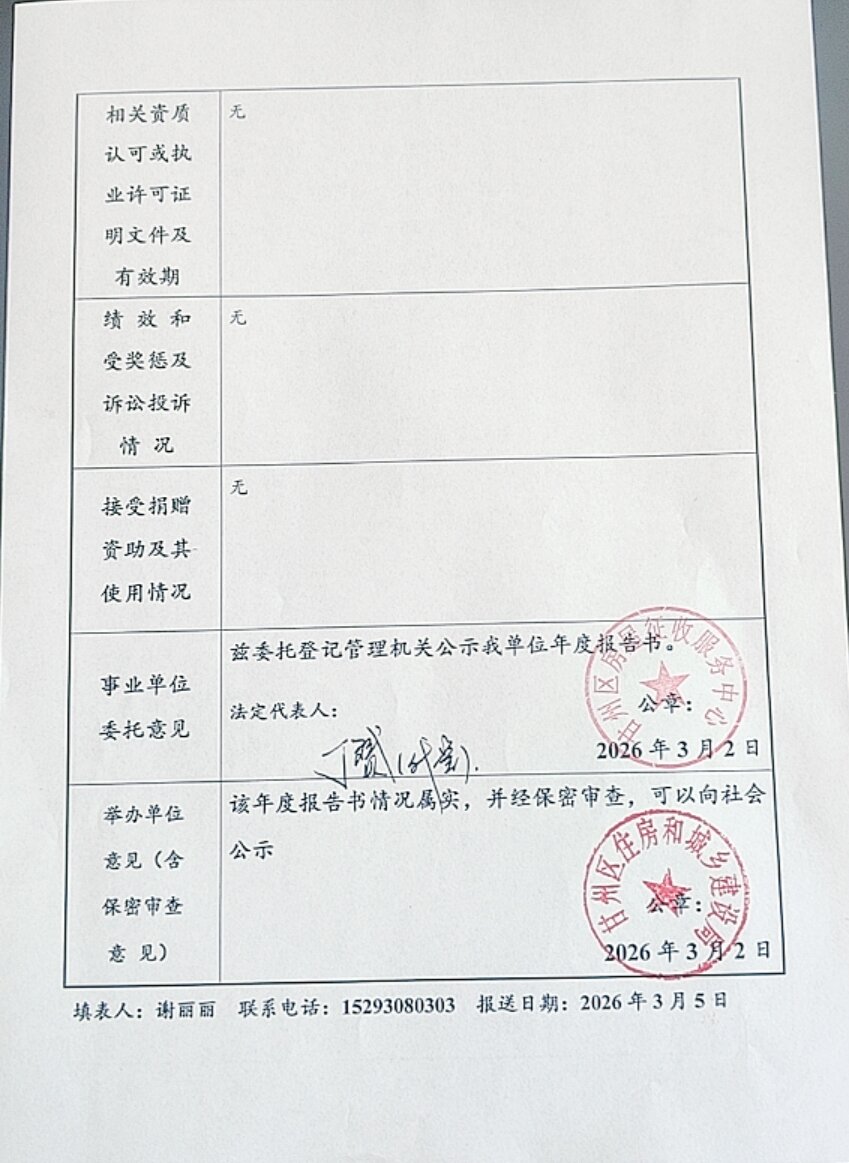 相关资质
认可或执
业许可证
明文件及
有效期
无
绩 效 和
受奖惩及
诉讼投诉
情 况
无
接受捐赠
资助及其
使用情况
无
事业单位
委托意见
兹委托登记管理机关公示我单位年度报告书。
法定代表人：
公章：
2026 年 3 月 2 日
甘州区房屋征收服务中心
举办单位
意见（含
保密审查
意 见）
该年度报告书情况属实，并经保密审查，可以向社会
公示
公章：
2026 年 3 月 2 日
甘州区住房和城乡建设局
填表人：谢丽丽 联系电话：15293080303 报送日期：2026 年 3 月 5 日